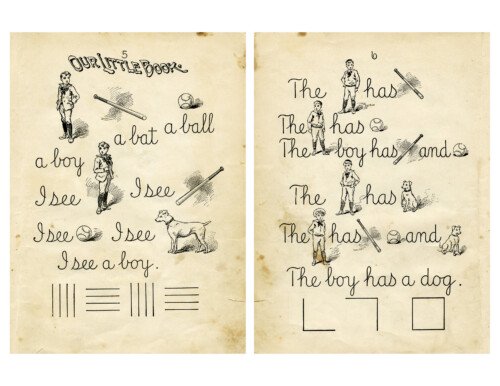 5
OUR LITTLE BOOK.
a bat a ball
a boy
I see I see
I see I see
I see a boy.
6
The has
The has
The boy has and
The has
The has and
The boy has a dog.